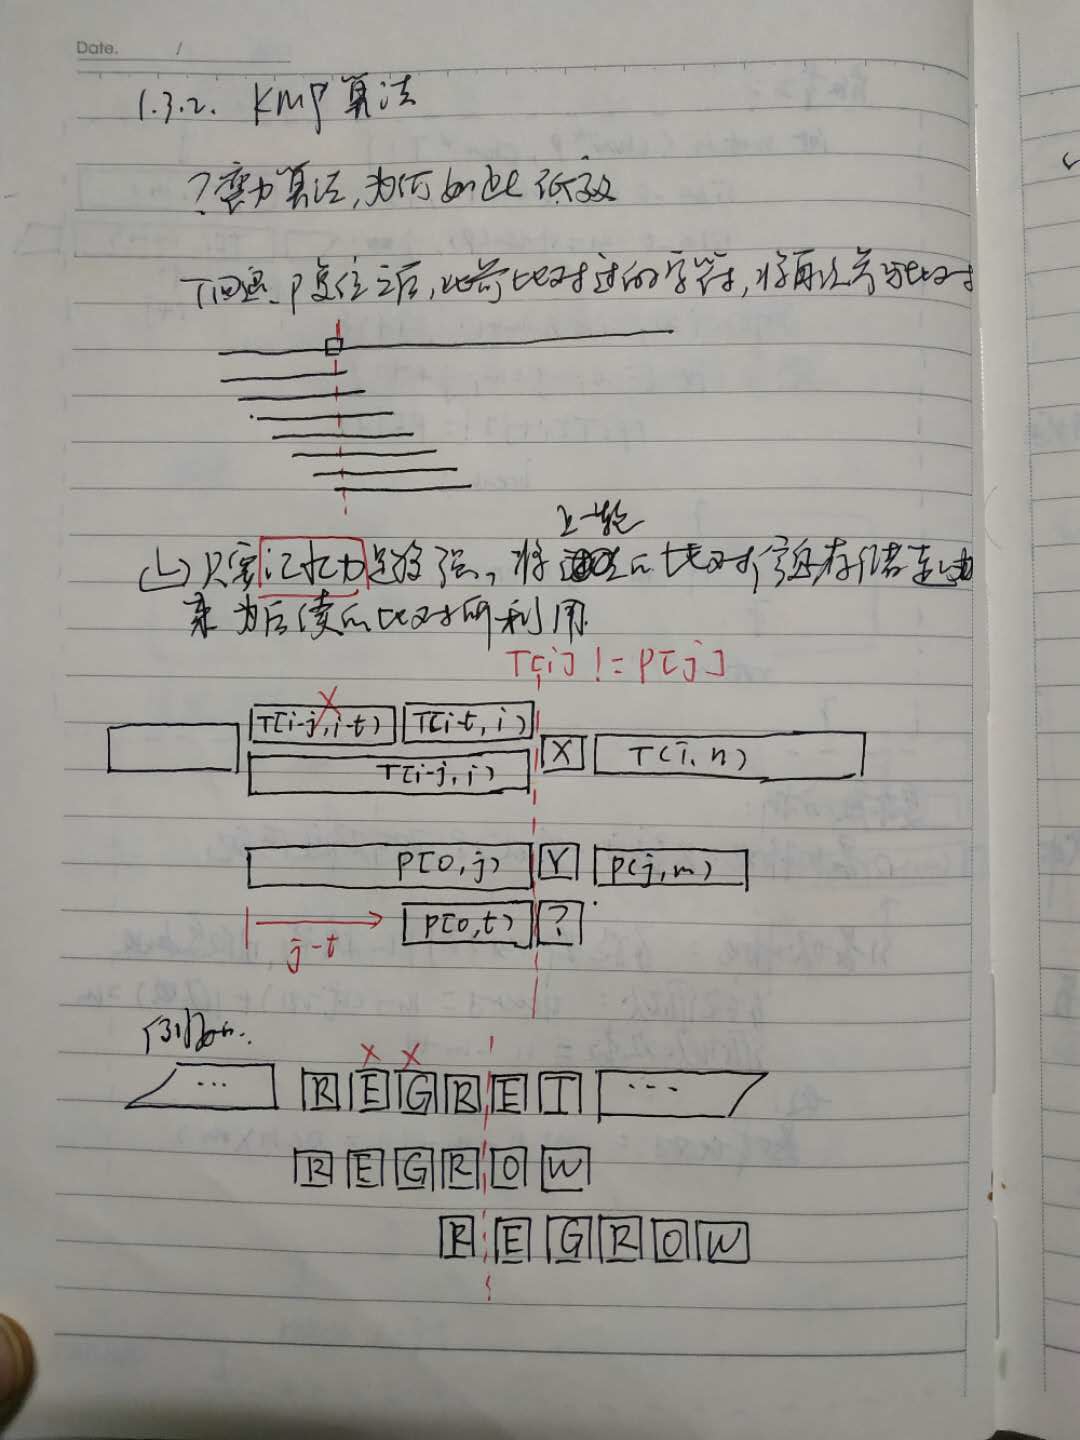 Date. /
1.3.2. KMP算法
?蛮力算法,为何如此低效
T回退、P复位之后,此前比对过的字符,将再次参与比对
上一轮
只要记忆力足够强,将的比对信息存储起来
为后续的比对所利用.
T[i] != P[j]
T[i-j, i-t) T[i-t, i)
X T(i, n)
T[i-j, i)
P[0, j) Y P(j, m)
P[0, t) ?
j-t
例如.
× ×
... R E G R E T ...
R E G R O W
R E G R O W